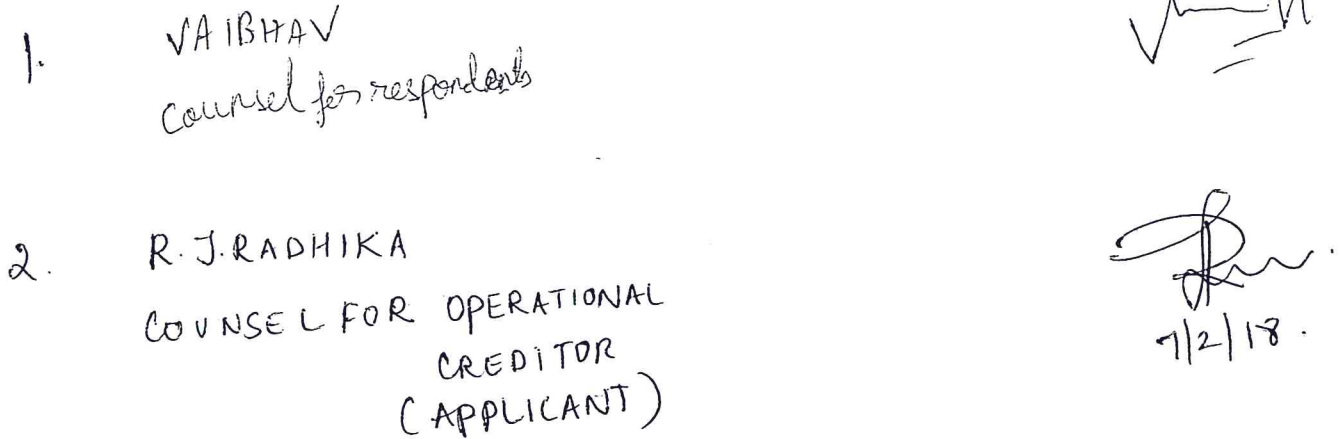 1. VAIBHAV
Counsel for respondents
2. R.J.RADHIKA
COUNSEL FOR OPERATIONAL
CREDITOR
(APPLICANT)
7/2/18.